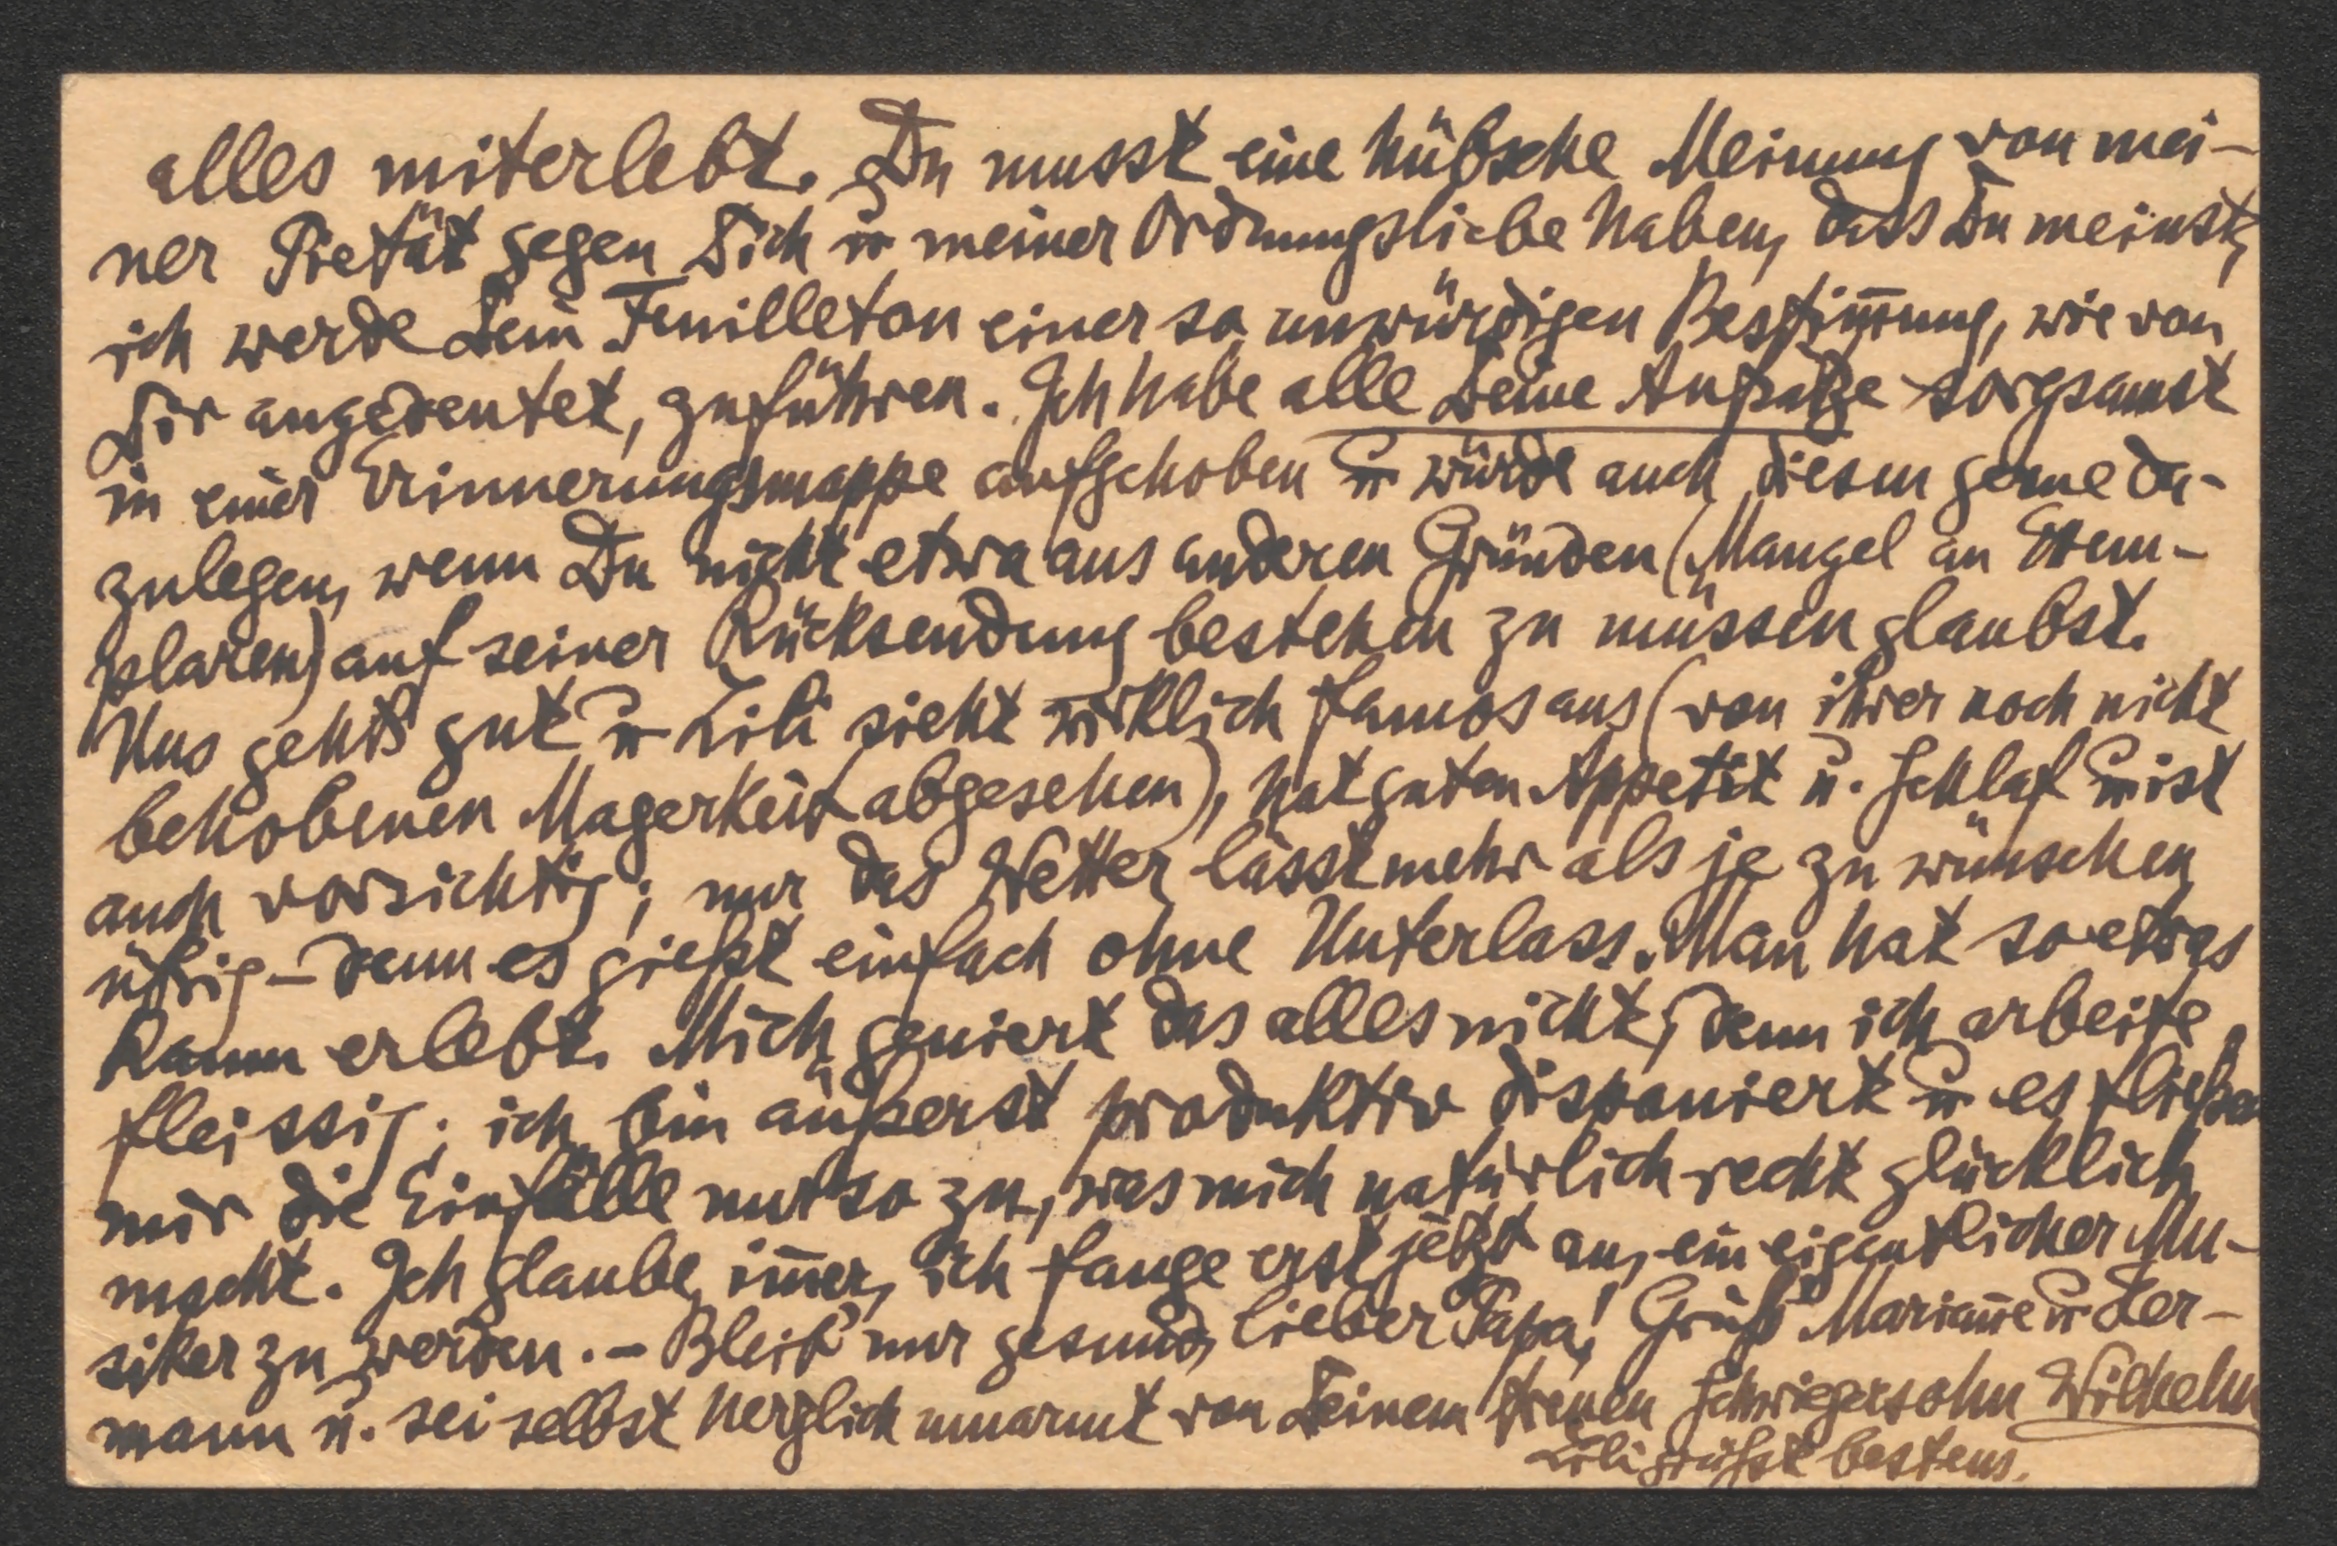 alles miterlebt. Du musst eine hübsche Meinung von mei-
ner Pietät gegen Dich u meiner Ordnungsliebe haben, dass Du meinst,
ich werde Dein Feuilleton einer so unwürdigen Bestim̄ung, wie von
Dir angedeutet, zuführen. Ich habe alle Deine Aufsätze sorgsamst
in einer Erinnerungsmappe aufgehoben u würde auch diesen gerne da-
zulegen, wenn Du nicht etwa aus anderen Gründen (Mangel an Exem-
plaren) auf seiner Rücksendung bestehen zu müssen glaubst.
Uns geht's gut u Lili sieht wirklich famos aus (von ihrer noch nicht
behobenen Magerkeit abgesehen), hat guten Appetit u. Schlaf u ist
auch vorsichtig; nur das Wetter lässt mehr als je zu wünschen
übrig – denn es gießt einfach ohne Unterlass. Man hat so etwas
kaum erlebt. Mich geniert das alles nicht, denn ich arbeite
fleissig; ich bin äußerst produktiv disponiert u es fließen
mir die Einfälle nur so zu, was mich natürlich recht glücklich
macht. Ich glaube im̄er, ich fange erst jetzt an, ein eigentlicher Mu-
siker zu werden. – Bleib' nur gesund, lieber Papa! Grüß' Marian̄e u Her-
mann u. sei selbst herzlich umarmt von Deinem treuen Schwiegersohn Wilhelm
Lili grüßt bestens.